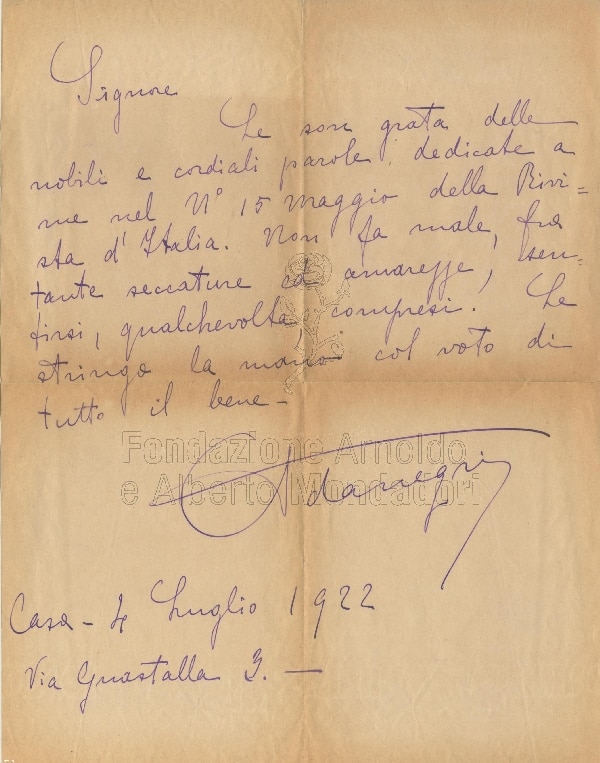 Signore
Le son grata delle
nobili e cordiali parole, dedicate a
me nel N° 15 Maggio della Rivi=
sta d'Italia. Non fa male, fra
tante seccature ed amarezze, sen-
tirsi, qualchevolta, compresi. Le
stringo la mano col voto di
tutto il bene-
Fondazione Arnoldo
e Alberto Mondadori
Adanegri
Casa - 4 Luglio 1922
Via Guastalla 3. —